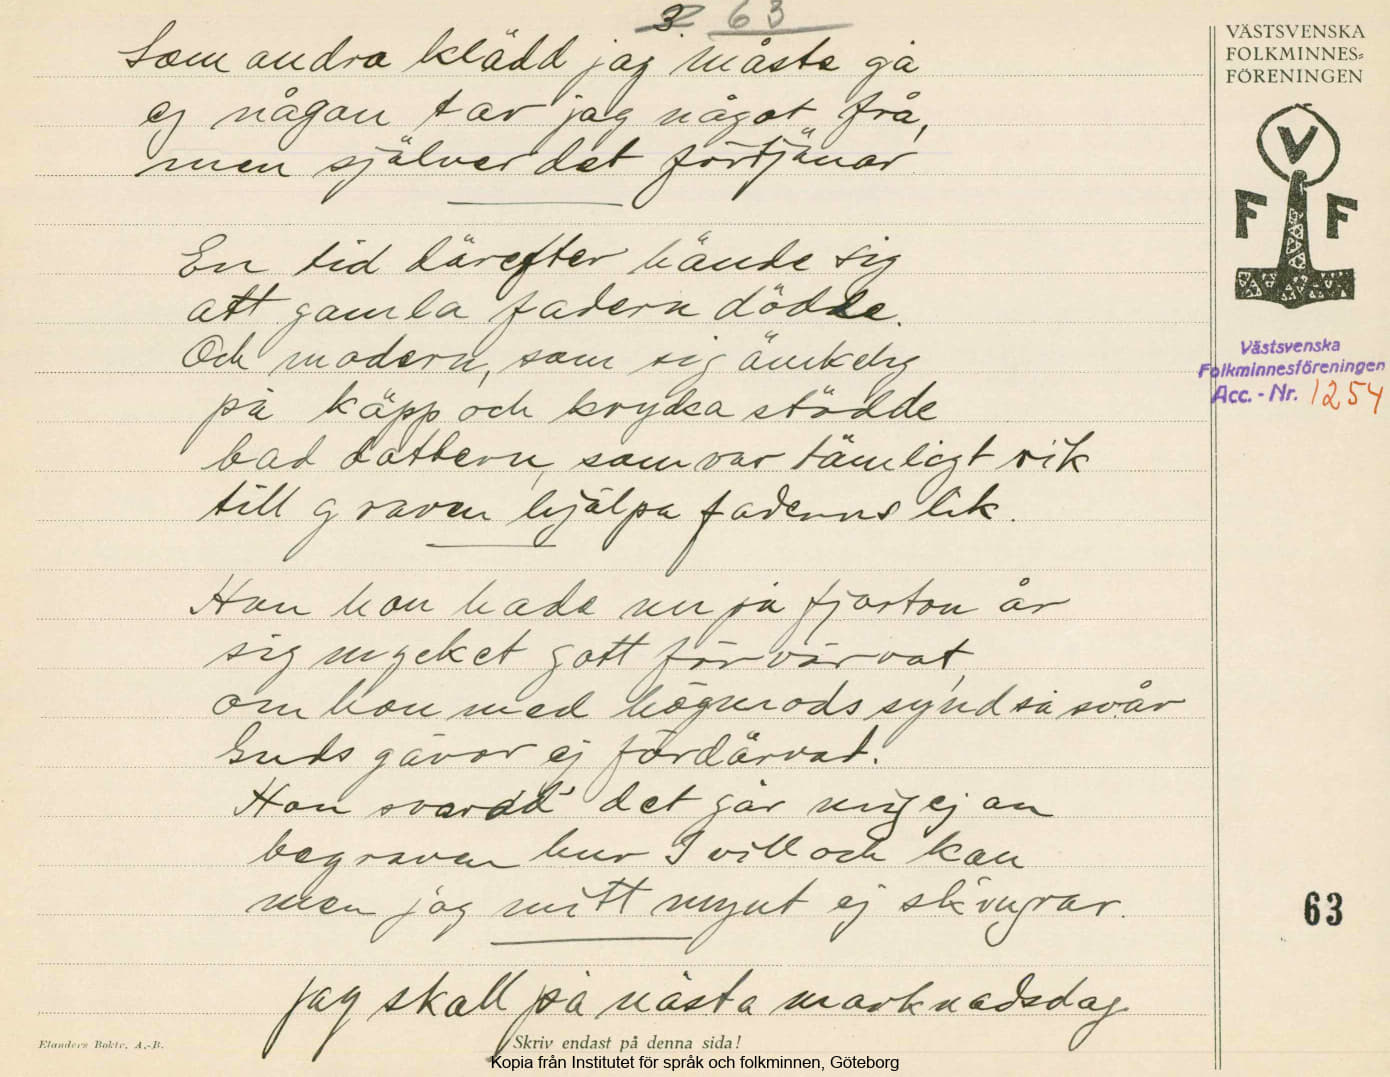 3. 63
Som andra klädd jag måste gå
ej någon tar jag något frå,
men själver det förtjänar
En tid därefter hände sig
att gamla fadern dödde.
Och modern, som sig ömkelig
på käpp och krycka stödde
bad dottern, som var tämligt rik
till graven hjälpa faderns lik.
Hon hon hade nu på fjorton år
sig mycket gott förvärvat,
om hon med högmods synd så svår
Guds gåvor ej fördärvat.
Hon svarad' det går mig ej an
begraven hur I vill och kan
men jag mitt mynt ej slängrar.
jag skall på nästa marknadsdag
VÄSTSVENSKA
FOLKMINNES=
FÖRENINGEN
V
F F
Västsvenska
Folkminnesföreningen
Acc. - Nr. 1254
63
Elanders Boktr. A.-B.
Skriv endast på denna sida!
Kopia från Institutet för språk och folkminnen, Göteborg